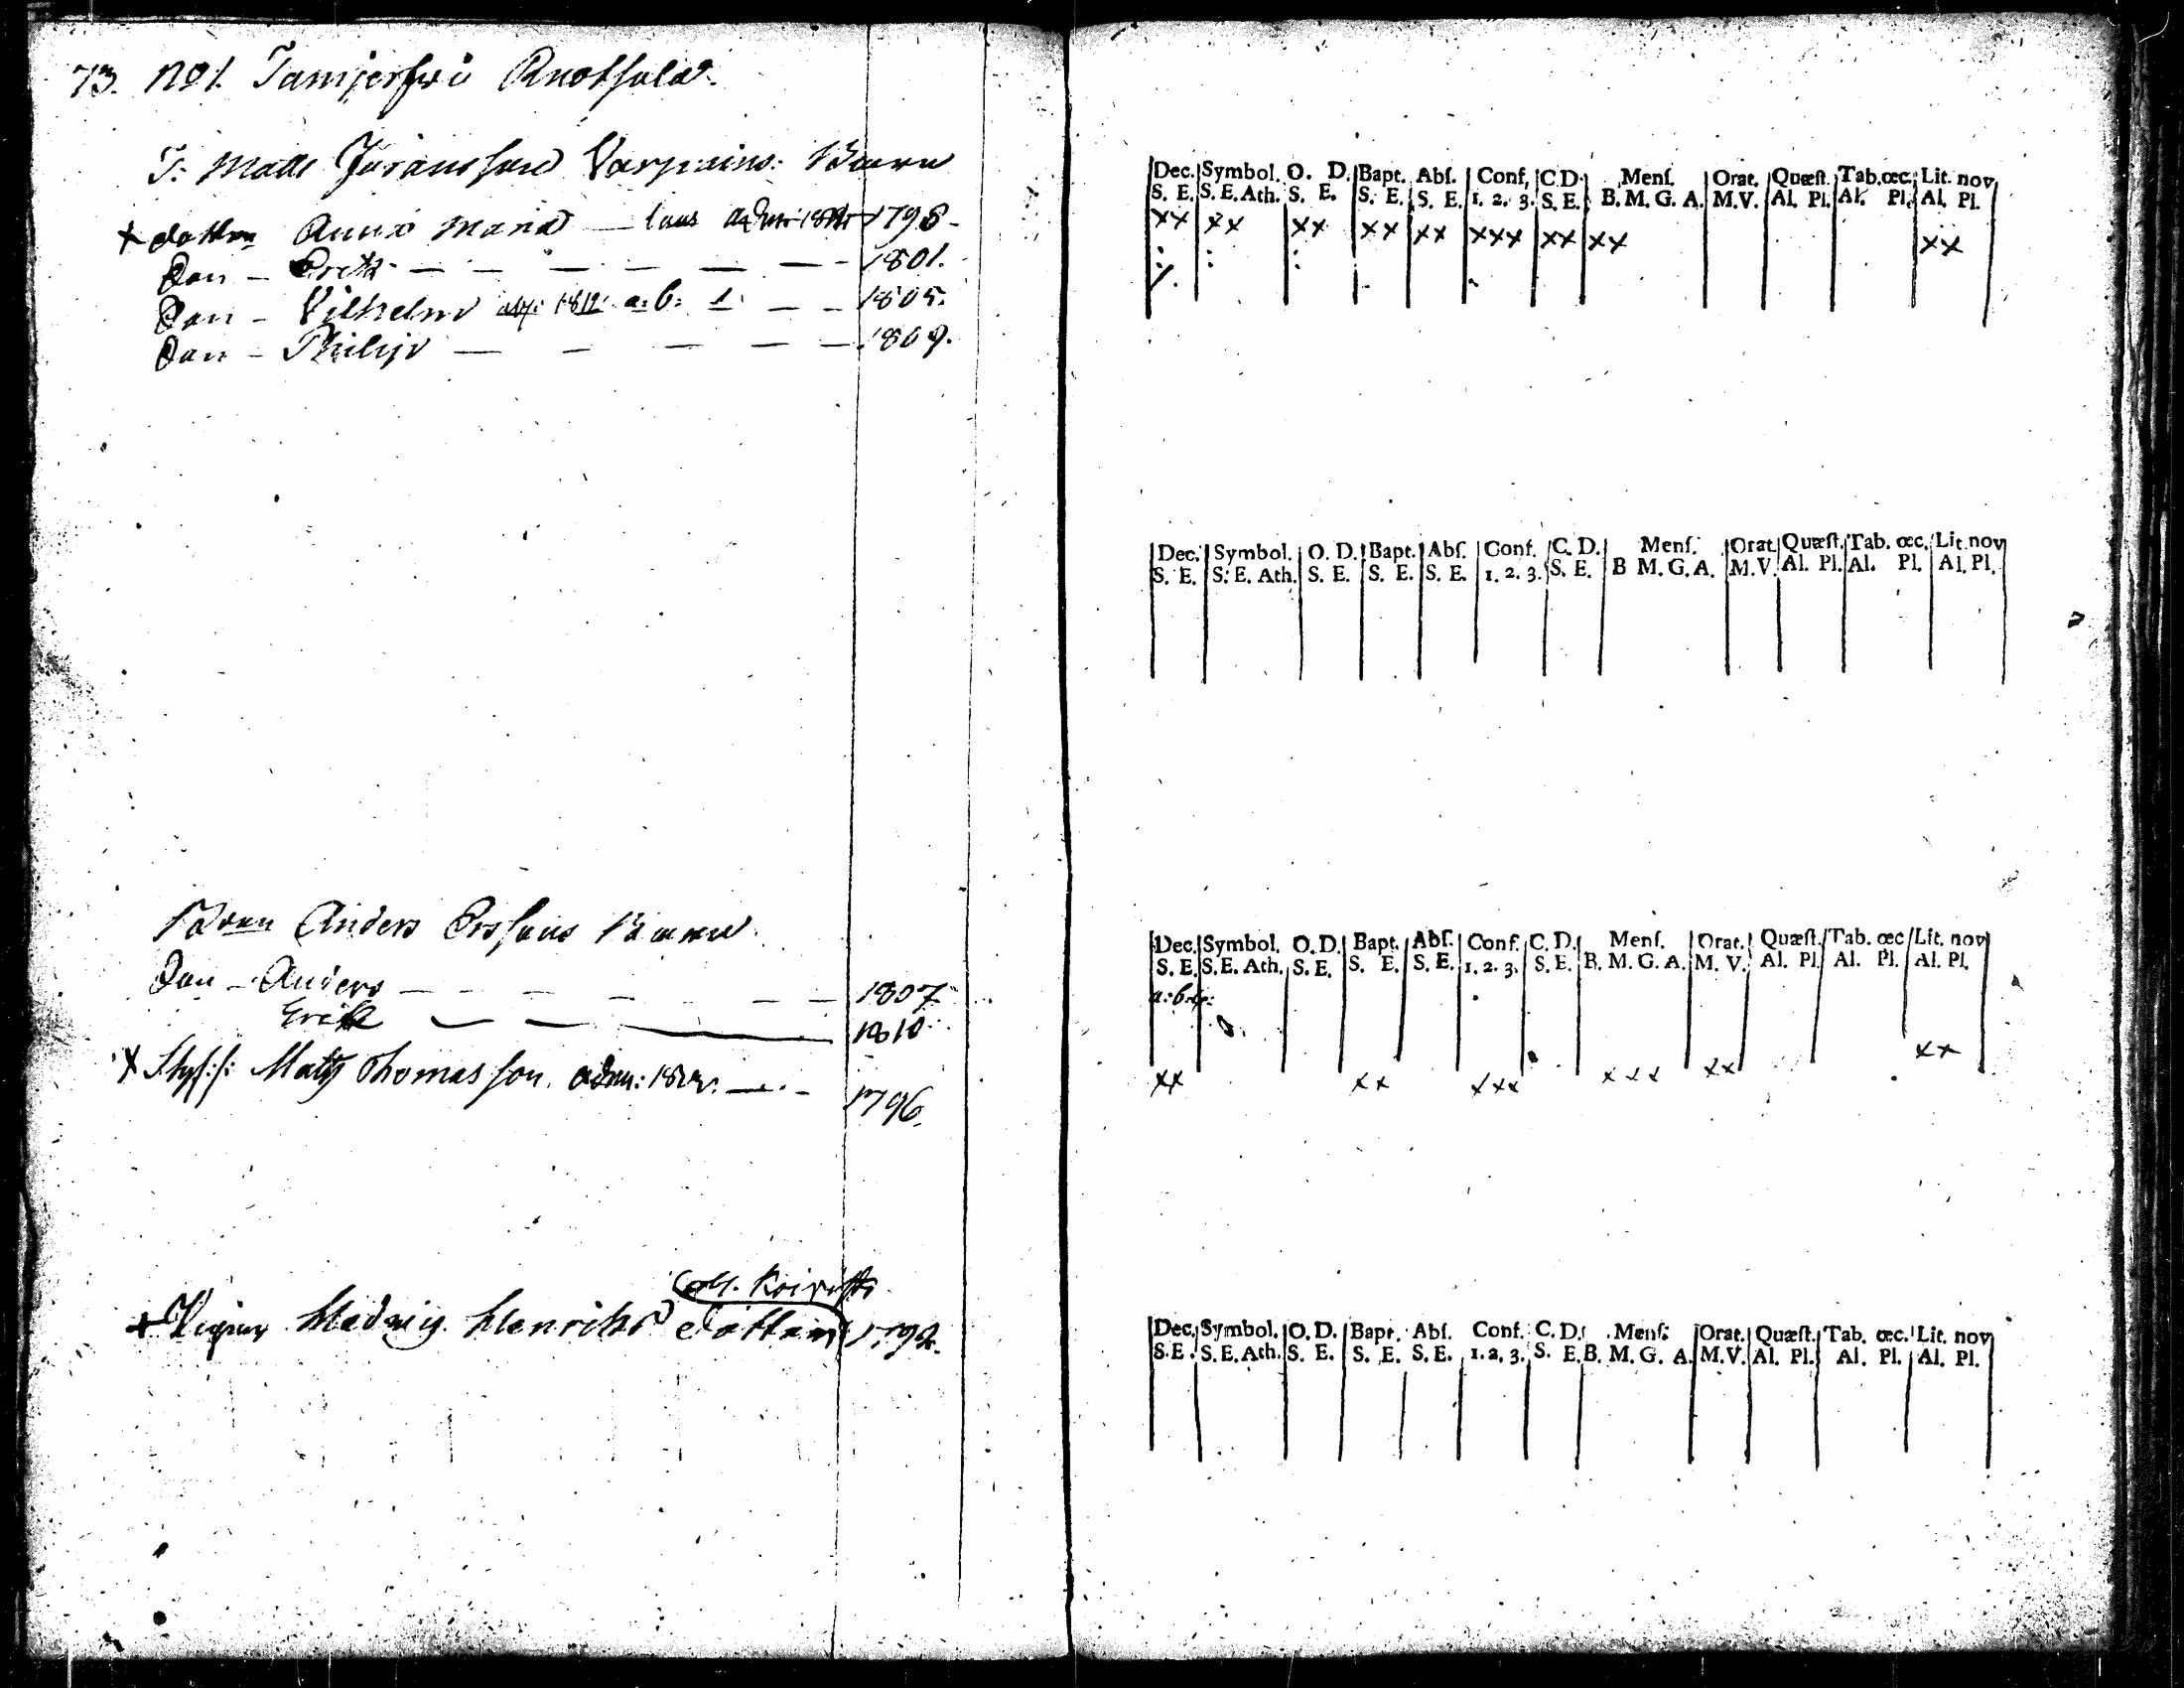 73. No 1. Tamjerfwi Knothola
T: Matts Jöransson Barn
+ dottren Anna Maria — 1798
Son – Erik – – – – – 1801.
Son – Vilhelm a: b: 1. – – 1805.
Son – Philip – – – – – 1809.
Anders Erssons Barn
Son – Anders – – – – – 1807
Erik – – – 1810
+ Styfs: Matts Thomas son. adm: – – 1796.
Koivisto
+ Pigan Hedwig Henriks dotter 1792.
Dec. Symbol. O. D. Bapt. Abſ. Conf. C.D. Menſ. Orat. Quæſt. Tab. œc. Lit. nov
S. E. S. E. Ath. S. E. S. E. S. E. 1. 2. 3. S. E. B. M. G. A. M. V. Al. Pl. Al. Pl. Al. Pl.
xx xx xx xx xx xxx xx xx xx
Dec. Symbol. O. D. Bapt. Abſ. Conf. C. D. Menſ. Orat. Quæſt. Tab. œc. Lit. nov
S. E. S. E. Ath. S. E. S. E. S. E. 1. 2. 3. S. E. B M. G. A. M. V. Al. Pl. Al. Pl. Al. Pl.
Dec. Symbol. O. D. Bapt. Abſ. Conf. C. D. Menſ. Orat. Quæſt. Tab. œc Lit. nov
S. E. S. E. Ath. S. E. S. E. S. E. 1. 2. 3. S. E. B. M. G. A. M. V. Al. Pl. Al. Pl. Al. Pl.
xx xx xxx xxx xx xx
Dec. Symbol. O. D. Bapt. Abſ. Conf. C. D. Menſ. Orat. Quæſt. Tab. œc. Lit. nov
S. E. S. E. Ath. S. E. S. E. S. E. 1. 2. 3. S. E. B. M. G. A. M. V. Al. Pl. Al. Pl. Al. Pl.